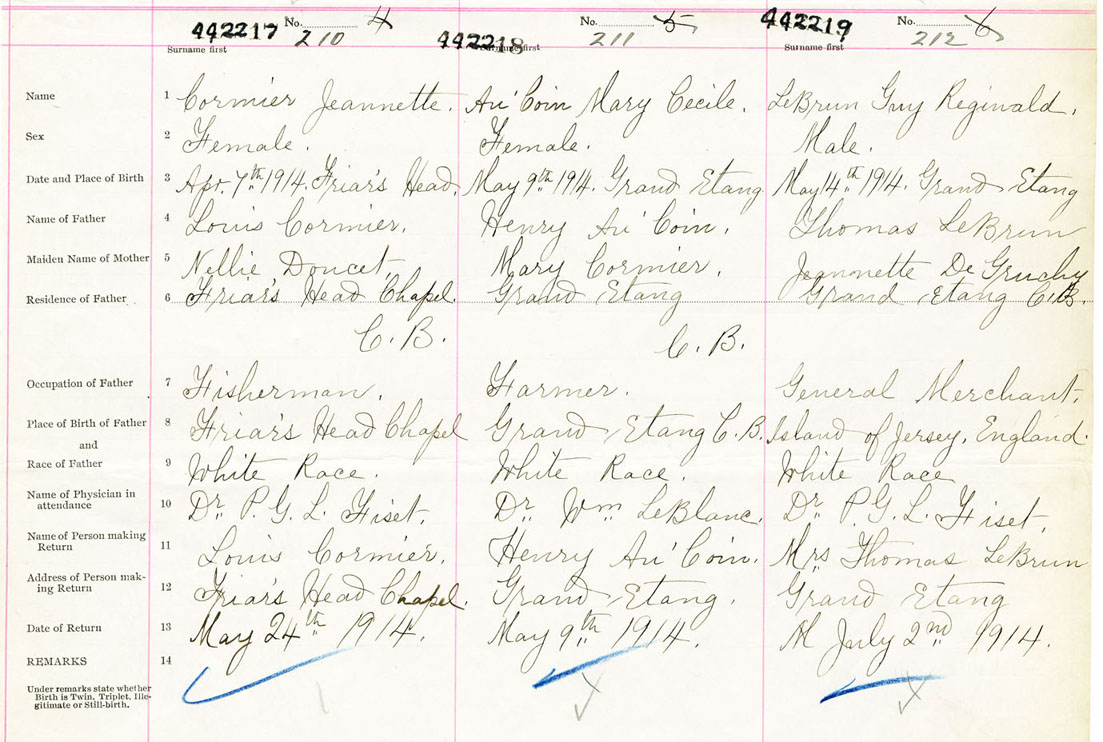 442217 No. 4 442218 No. 5 442219 No. 6
210 211 212
Surname first Surname first Surname first
Name 1 Cormier Jeannette. Au'Coin Mary Cecile. LeBrun Guy Reginald.
Sex 2 Female. Female. Male.
Date and Place of Birth 3 Apr. 7th 1914. Friar's Head. May 9th 1914. Grand Etang May 14th 1914. Grand Etang
Name of Father 4 Louis Cormier. Henry Au'Coin. Thomas LeBrun
Maiden Name of Mother 5 Nellie Doucet. Mary Cormier. Jeannette De Gruchy
Residence of Father 6 Friar's Head Chapel. Grand Etang Grand Etang C.B.
C.B. C.B.
Occupation of Father 7 Fisherman. Farmer. General Merchant.
Place of Birth of Father 8 Friar's Head Chapel Grand Etang C.B. Island of Jersey, England.
and
Race of Father 9 White Race. White Race. White Race
Name of Physician in
attendance 10 Dr. P. G. L. Fiset. Dr. Wm LeBlanc. Dr. P. G. L. Fiset.
Name of Person making
Return 11 Louis Cormier. Henry Au'Coin. Mrs Thomas LeBrun
Address of Person mak-
ing Return 12 Friar's Head Chapel. Grand Etang. Grand Etang
Date of Return 13 May 24th 1914. May 9th 1914. July 2nd 1914.
REMARKS 14
Under remarks state whether
Birth is Twin, Triplet, Ille-
gitimate or Still-birth.